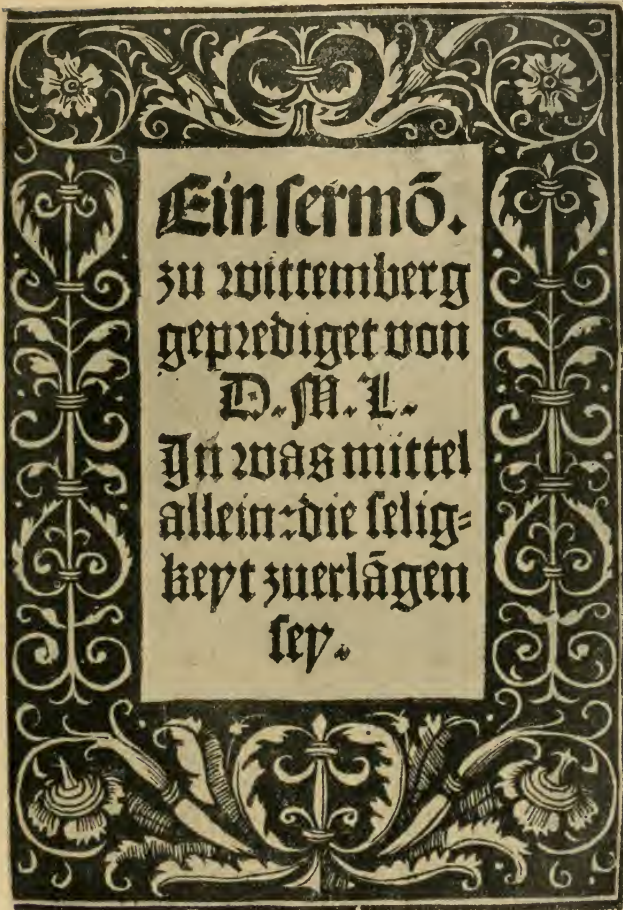 Ein sermō.
zu wittemberg
geprediget von
D. M. L.
In was mittel
allein: die selig⸗
keyt zuerlāgen
sey.